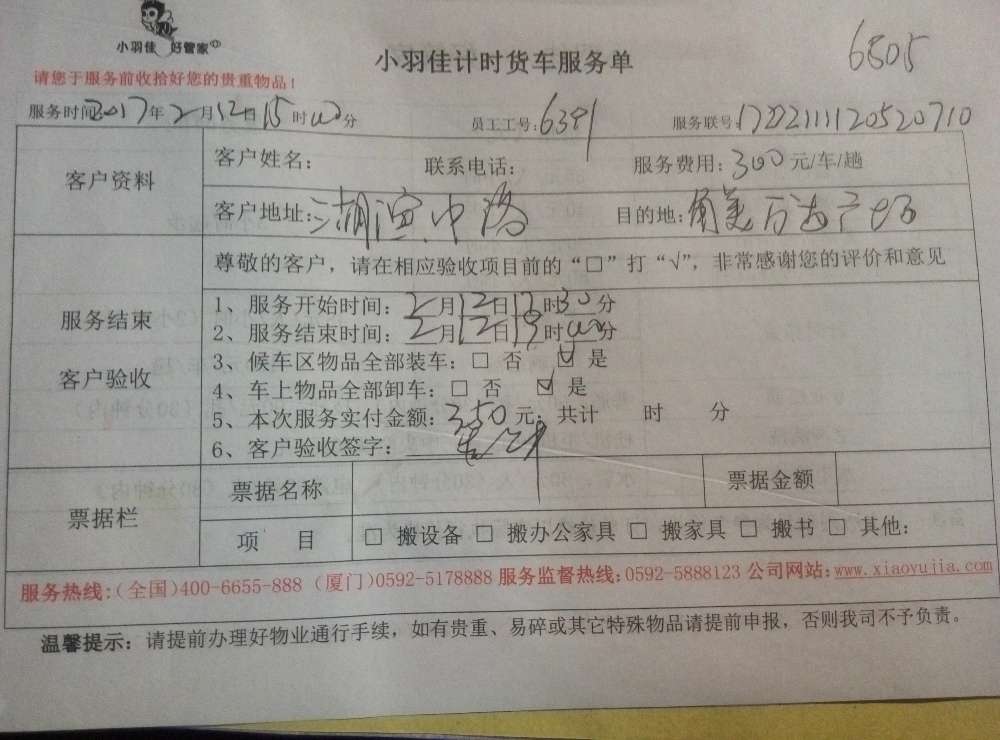 小羽佳 好管家
6505
小羽佳计时货车服务单
请您于服务前收拾好您的贵重物品！
服务时间2017年2月12日15时00分 员工工号:6391 服务联号:
客户资料
客户姓名： 联系电话： 服务费用：300元/车/趟
客户地址：湖滨中路 目的地：角美万达广场
尊敬的客户，请在相应验收项目前的“□”打“√”，非常感谢您的评价和意见
服务结束
客户验收
1、服务开始时间：2月12日 时30分
2、服务结束时间：2月12日 时00分
3、候车区物品全部装车：□ 否 ☑ 是
4、车上物品全部卸车：□ 否 ☑ 是
5、本次服务实付金额：350元；共计 时 分
6、客户验收签字：
票据栏
票据名称 票据金额
项 目 □ 搬设备 □ 搬办公家具 □ 搬家具 □ 搬书 □ 其他：
服务热线：(全国)400-6655-888 (厦门)0592-5178888 服务监督热线：0592-5888123 公司网站：www.xiaoyujia.com
温馨提示：请提前办理好物业通行手续，如有贵重、易碎或其它特殊物品请提前申报，否则我司不予负责。